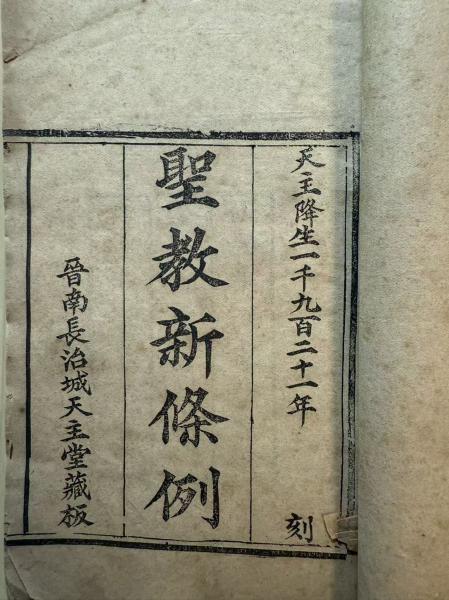 天主降生一千九百二十一年 刻
聖教新條例
晉南長治城天主堂藏板